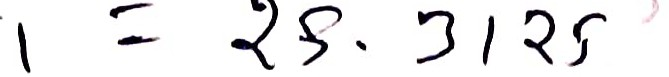 1 = 25.3125